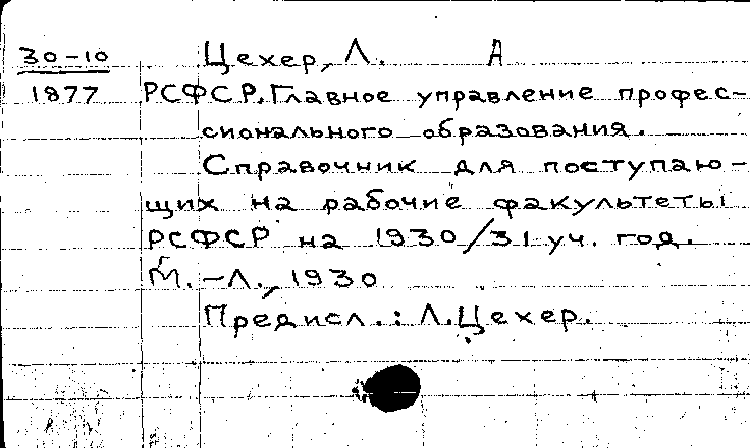 30-10 Цехер, Л. А
1877 РСФСР. Главное управление профес-
сионального образования.
Справочник для поступаю-
щих на рабочие факультеты
РСФСР на 1930/31 уч. год.
М.-Л., 1930
Предисл.: Л. Цехер.